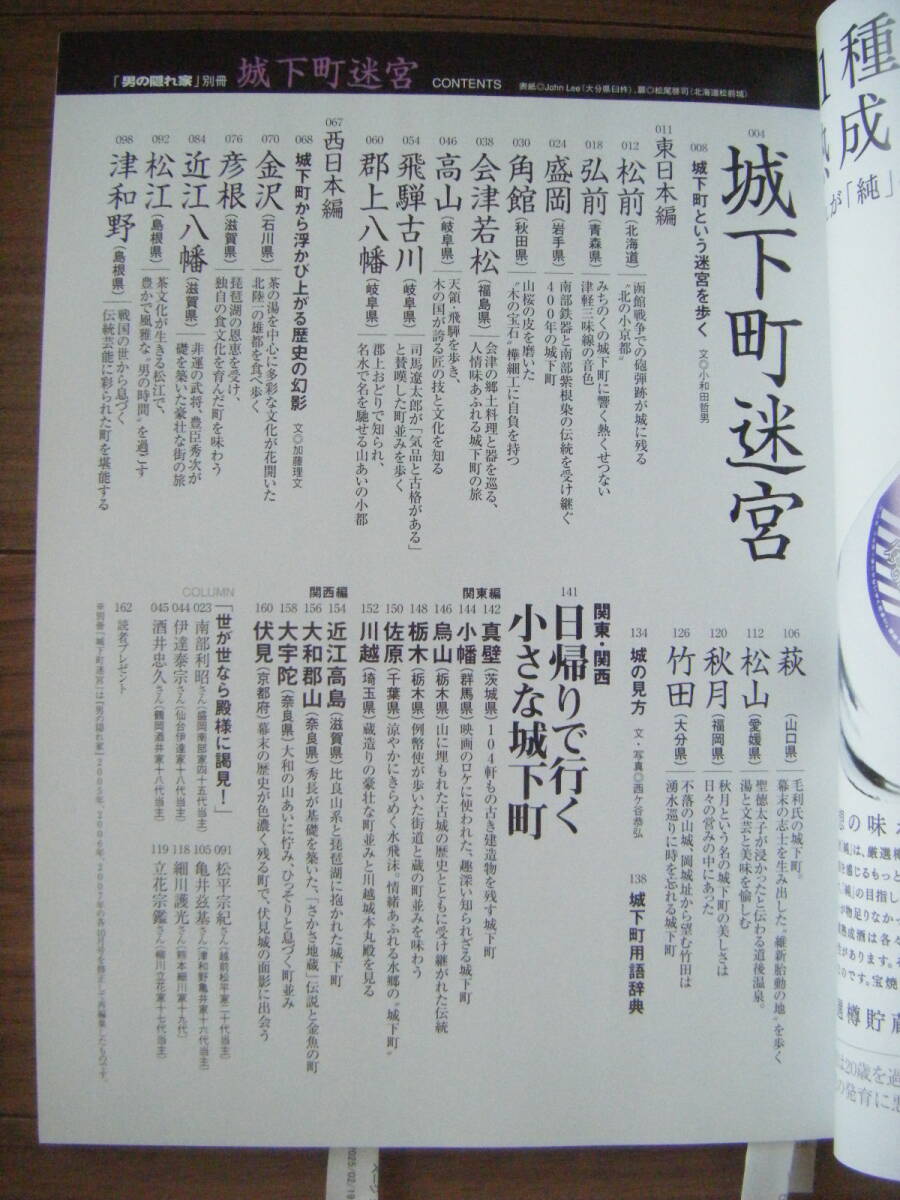 「男の隠れ家」別冊 城下町迷宮 CONTENTS 表紙◎John Lee(大分県臼杵)、扉◎松尾啓司(北海道松前城)
004 城下町迷宮
008 城下町という迷宮を歩く 文◎小和田哲男
011 東日本編
012 松前(北海道)
函館戦争での砲弾跡が城に残る
“北の小京都”
018 弘前(青森県)
みちのくの城下町に響く熱くせつない
津軽三味線の音色
024 盛岡(岩手県)
南部鉄器と南部紫根染の伝統を受け継ぐ
400年の城下町
030 角館(秋田県)
山桜の皮を磨いた
“木の宝石”樺細工に自負を持つ
038 会津若松(福島県)
会津の郷土料理と器を巡る、
人情味あふれる城下町の旅
046 高山(岐阜県)
天領・飛騨を歩き、
木の国が誇る匠の技と文化を知る
054 飛騨古川(岐阜県)
司馬遼太郎が「気品と古格がある」
と賛嘆した町並みを歩く
060 郡上八幡(岐阜県)
郡上おどりで知られ、
名水で名を馳せる山あいの小都
067 西日本編
068 城下町から浮かび上がる歴史の幻影 文◎加藤理文
070 金沢(石川県)
茶の湯を中心に多彩な文化が花開いた
北陸一の雄都を食べ歩く
076 彦根(滋賀県)
琵琶湖の恩恵を受け、
独自の食文化を育んだ町を味わう
084 近江八幡(滋賀県)
非運の武将、豊臣秀次が
礎を築いた豪壮な街の旅
092 松江(島根県)
茶文化が生きる松江で、
豊かで風雅な“男の時間”を過ごす
098 津和野(島根県)
戦国の世から息づく
伝統芸能に彩られた町を堪能する
106 萩(山口県)
毛利氏の城下町。
幕末の志士を生み出した“維新胎動の地”を歩く
112 松山(愛媛県)
聖徳太子が浸かったと伝わる道後温泉。
湯と文芸と美味を愉しむ
120 秋月(福岡県)
秋月という名の城下町の美しさは
日々の営みの中にあった
126 竹田(大分県)
不落の山城、岡城址から望む竹田は
湧水巡りに時を忘れる城下町
134 城の見方 文・写真◎西ケ谷恭弘
138 城下町用語辞典
141 関東・関西
日帰りで行く
小さな城下町
関東編
142 真壁(茨城県)104軒もの古き建造物を残す城下町
144 小幡(群馬県)映画のロケに使われた、趣深い知られざる城下町
146 烏山(栃木県)山に埋もれた古城の歴史とともに受け継がれた伝統
148 栃木(栃木県)例幣使が歩いた街道と蔵の町並みを味わう
150 佐原(千葉県)涼やかにきらめく水飛沫。情緒あふれる水郷の“城下町”
152 川越(埼玉県)蔵造りの豪壮な町並みと川越城本丸殿を見る
関西編
154 近江高島(滋賀県)比良山系と琵琶湖に抱かれた城下町
156 大和郡山(奈良県)秀長が基礎を築いた、「さかさ地蔵」伝説と金魚の町
158 大宇陀(奈良県)大和の山あいに佇み、ひっそりと息づく町並み
160 伏見(京都府)幕末の歴史が色濃く残る町で、伏見城の面影に出会う
COLUMN
「世が世なら殿様に謁見!」
023 南部利昭さん(盛岡南部家四十五代当主)
044 伊達泰宗さん(仙台伊達家十八代当主)
045 酒井忠久さん(鶴岡酒井家十八代当主)
091 松平宗紀さん(越前松平家二十代当主)
105 亀井玆基さん(津和野亀井家十六代当主)
118 細川護光さん(熊本細川家十九代)
119 立花宗鑑さん(柳川立花家十七代当主)
162 読者プレゼント
※別冊「城下町迷宮」は「男の隠れ家」2005年、2006年、2007年の各10月号を修正して再編集したものです。
種
成
が「純」
想の味
「純」は、厳選
を感じるもっと
「純」の目指し
が物足りなかっ
熟成酒は各々
性があります。そ
のです。宝焼
樽貯蔵
は20歳を過
の発育に悪
2025/02/19